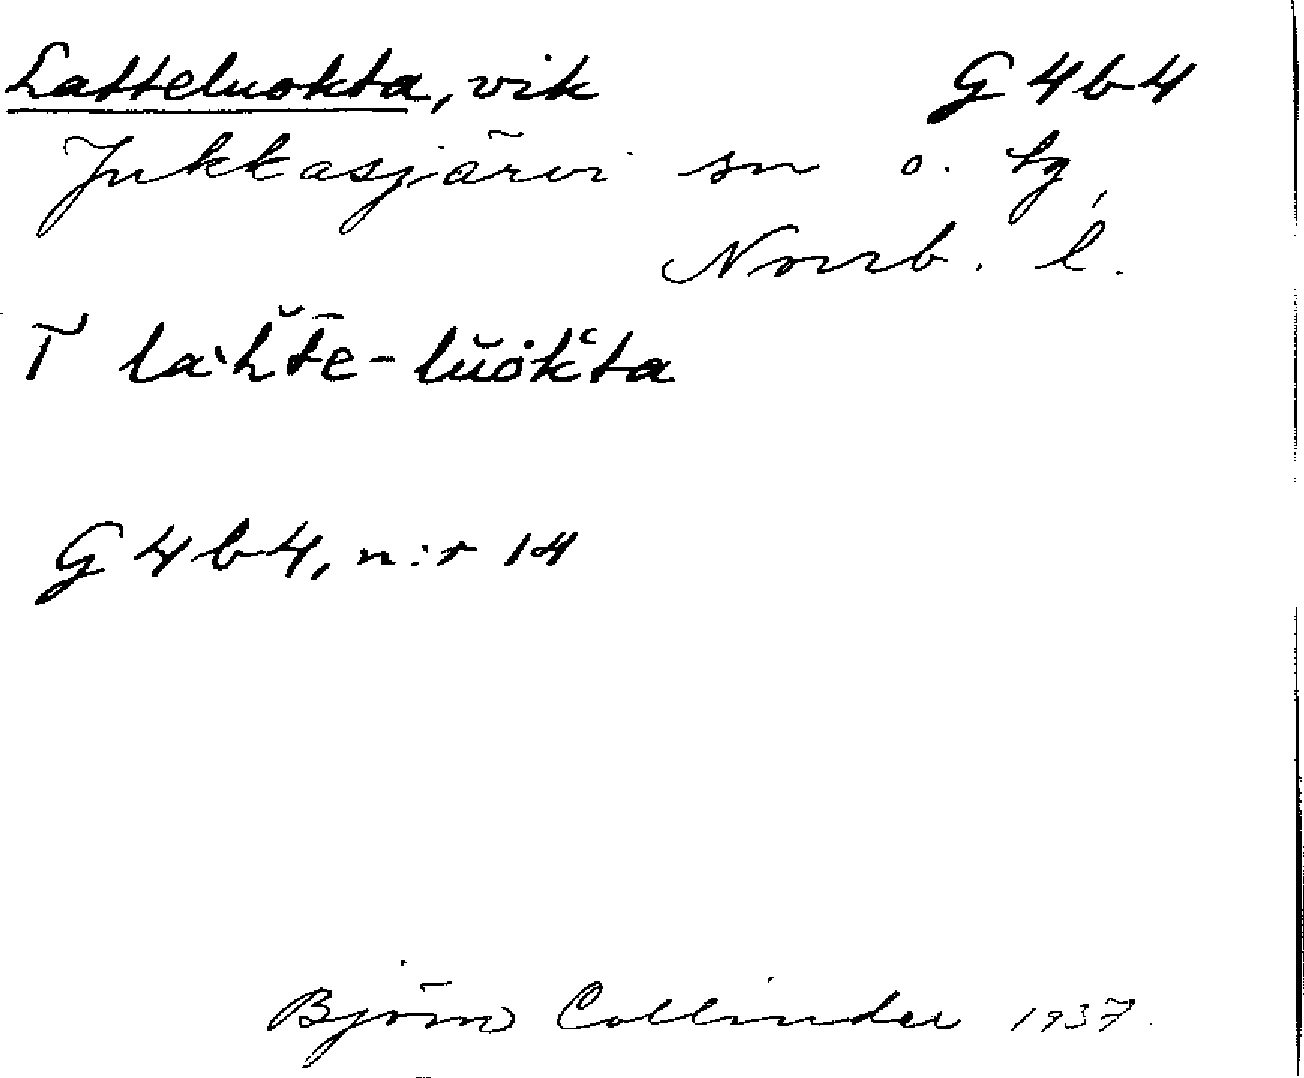 Latteluokta, vik G 4 b 4
Jukkasjärvi sn o. tg,
Norrb. l.
T laˈh̆t̄e-lŭȯk̆ʿta
G 4 b 4, n:r 14
Björn Collinder 1937.